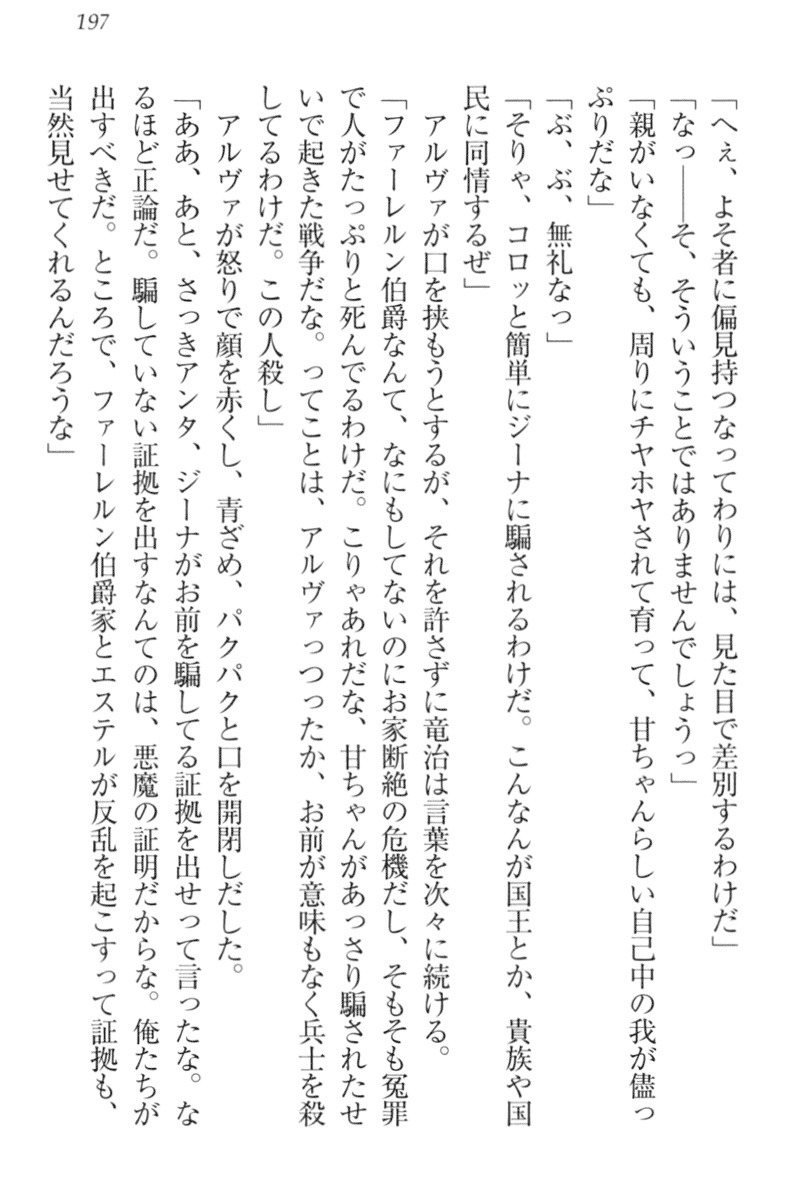 197
「へぇ、よそ者に偏見持つなってわりには、見た目で差別するわけだ」
「なっ――そ、そういうことではありませんでしょうっ」
「親がいなくても、周りにチヤホヤされて育って、甘ちゃんらしい自己中の我が儘っ
ぷりだな」
「ぶ、ぶ、無礼なっ」
「そりゃ、コロッと簡単にジーナに騙されるわけだ。こんなんが国王とか、貴族や国
民に同情するぜ」
　アルヴァが口を挟もうとするが、それを許さずに竜治は言葉を次々に続ける。
「ファーレルン伯爵なんて、なにもしてないのにお家断絶の危機だし、そもそも冤罪
で人がたっぷりと死んでるわけだ。こりゃあれだな、甘ちゃんがあっさり騙されたせ
いで起きた戦争だな。ってことは、アルヴァっつったか、お前が意味もなく兵士を殺
してるわけだ。この人殺し」
　アルヴァが怒りで顔を赤くし、青ざめ、パクパクと口を開閉しだした。
「ああ、あと、さっきアンタ、ジーナがお前を騙してる証拠を出せって言ったな。な
るほど正論だ。騙していない証拠を出すなんてのは、悪魔の証明だからな。俺たちが
出すべきだ。ところで、ファーレルン伯爵家とエステルが反乱を起こすって証拠も、
当然見せてくれるんだろうな」